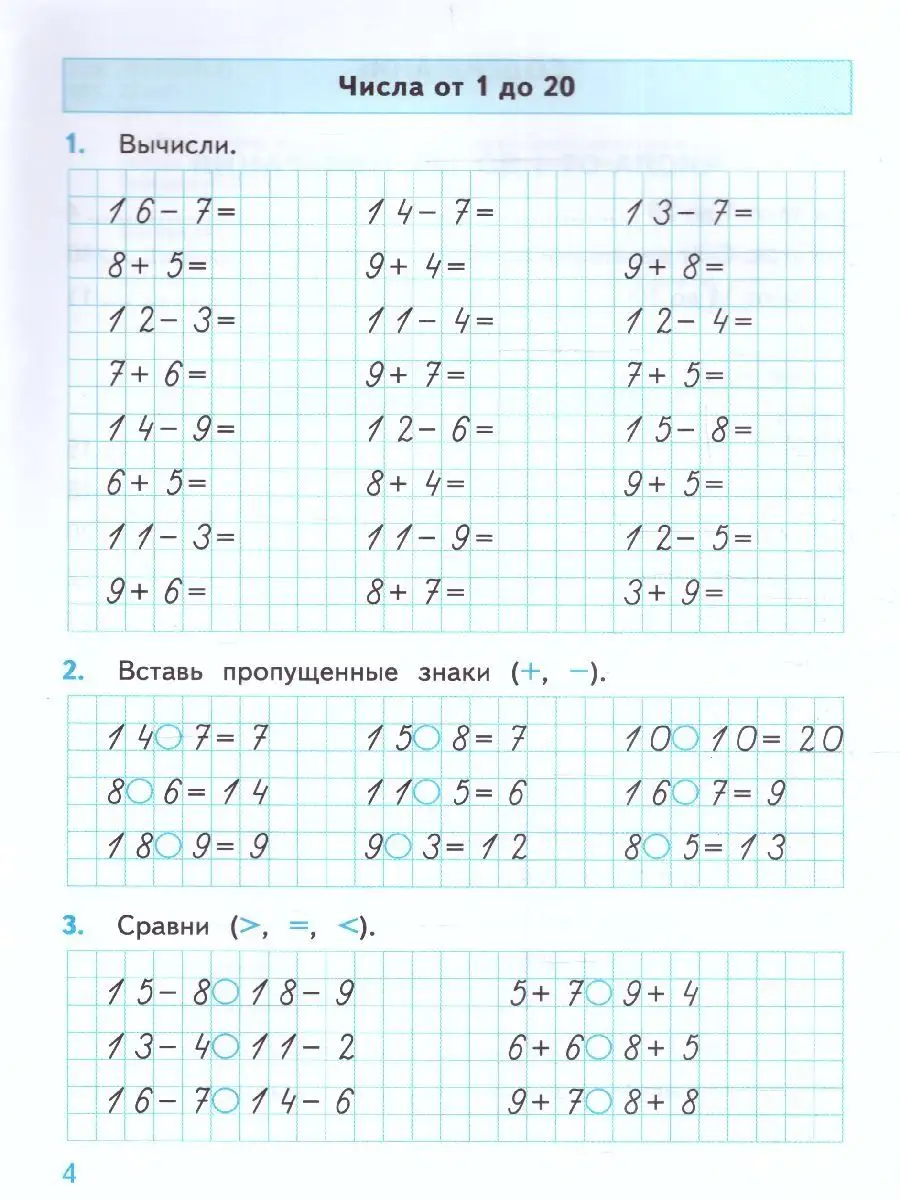 Числа от 1 до 20
1. Вычисли.
16-7= 14-7= 13-7=
8+5= 9+4= 9+8=
12-3= 11-4= 12-4=
7+6= 9+7= 7+5=
14-9= 12-6= 15-8=
6+5= 8+4= 9+5=
11-3= 11-9= 12-5=
9+6= 8+7= 3+9=
2. Вставь пропущенные знаки (+, −).
14○7=7 15○8=7 10○10=20
8○6=14 11○5=6 16○7=9
18○9=9 9○3=12 8○5=13
3. Сравни (>, =, <).
15-8○18-9 5+7○9+4
13-4○11-2 6+6○8+5
16-7○14-6 9+7○8+8
4